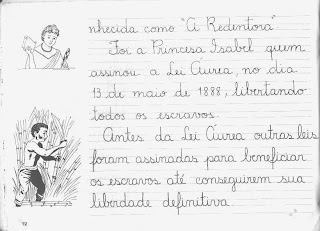 nhecida como "A Redentora".
Foi a Princesa Isabel quem
assinou a Lei Áurea, no dia
13 de maio de 1888, libertando
todos os escravos.
Antes da Lei Áurea outras leis
foram assinadas para beneficiar
os escravos até conseguirem sua
liberdade definitiva.